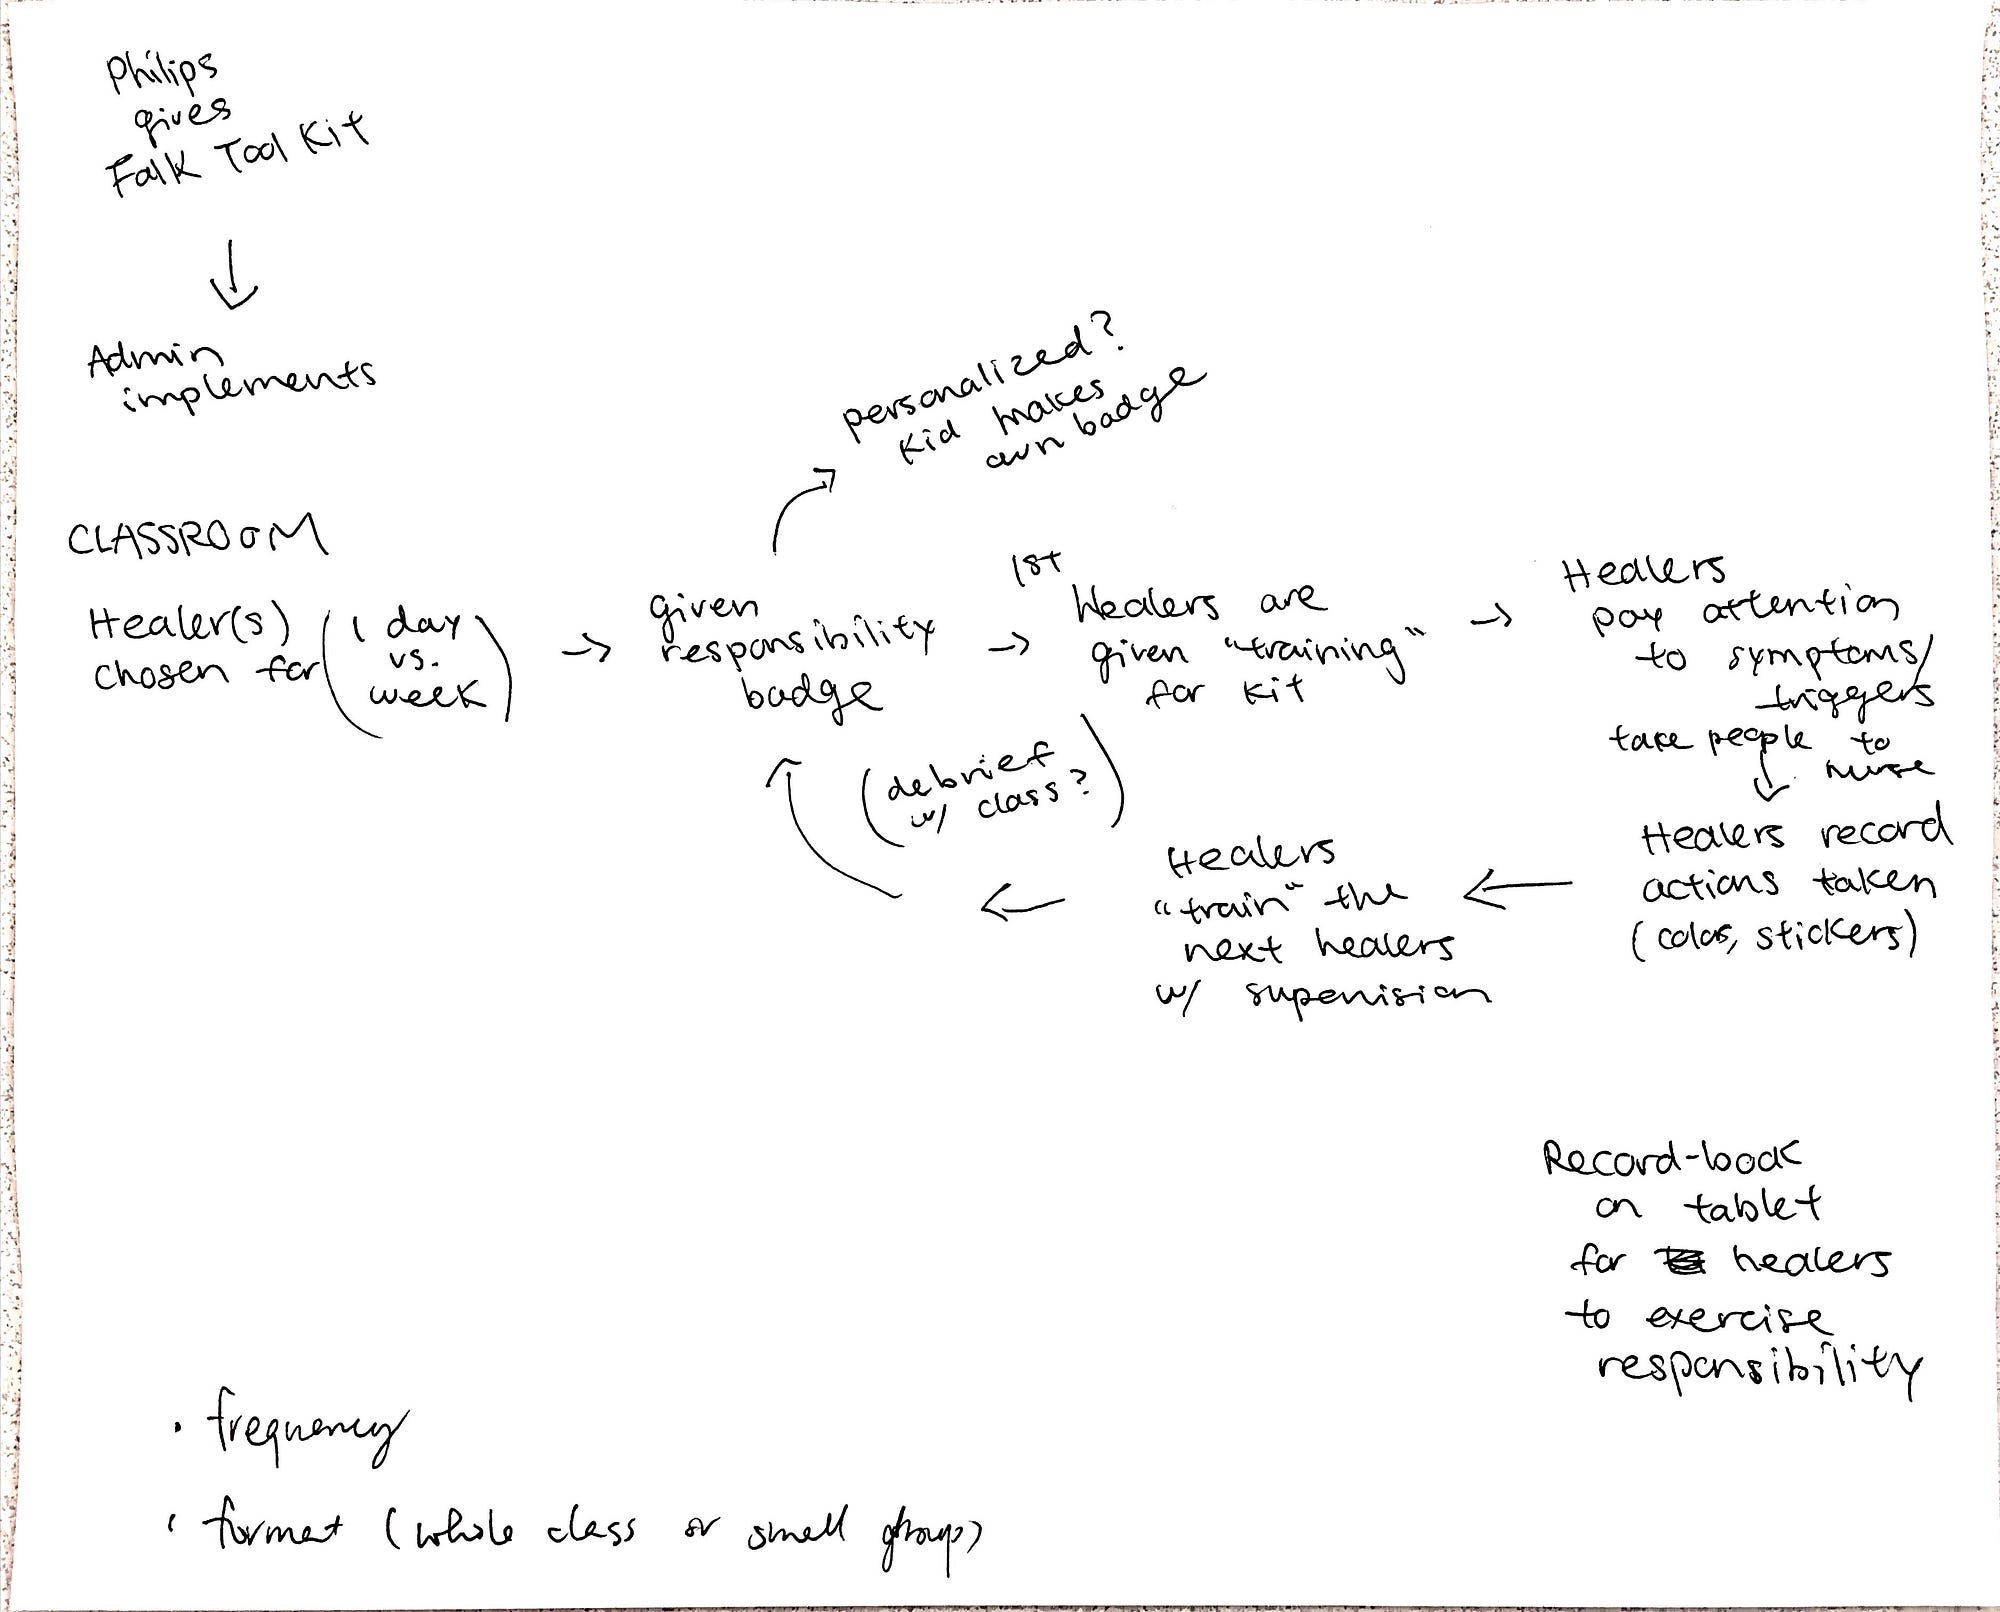 Philips
gives
Falk Tool Kit
Admin
implements
personalized?
Kid makes
own badge
CLASSROOM
Healer(s)
chosen for
(1 day
vs.
week)
given
responsibility
badge
1st
Healers are
given "training"
for kit
Healers
pay attention
to symptoms/
triggers
take people to
nurse
(debrief
w/ class?)
Healers record
actions taken
(colors, stickers)
Healers
"train" the
next healers
w/ supervision
Record-book
on tablet
for healers
to exercise
responsibility
· frequency
· format (whole class or small group)